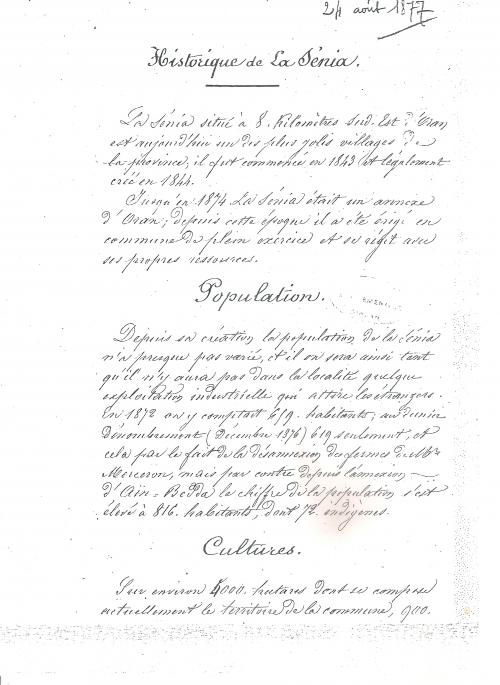 24 août 1877
Historique de La Sénia.
La Sénia situé à 8. Kilomètres Sud-Est d'Oran
est aujourd'hui un des plus jolis villages de
la province, il fut commencé en 1843 et légalement
créé en 1844.
Jusqu'en 1874 La Sénia était un annexe
d'Oran; depuis cette époque il a été érigé en
commune de plein exercice et se régit avec
ses propres ressources.
Population.
Depuis sa création la population de la Sénia
n'a presque pas varié, et il en sera ainsi tant
qu'il n'y aura pas dans la localité quelque
exploitation industrielle qui attire les étrangers.
en 1872 on y comptait 619. habitants; au dernier
dénombrement (Décembre 1876) 619 seulement, et
cela par le fait de la désannexion des fermes de
Merceron, mais par contre depuis l'annexion
d'Aïn-Beïda le chiffre de la population s'est
élevé à 816. habitants, dont 72. indigènes.
Cultures.
Sur environ 4000. hectares dont se compose
actuellement le territoire de la commune, 900.